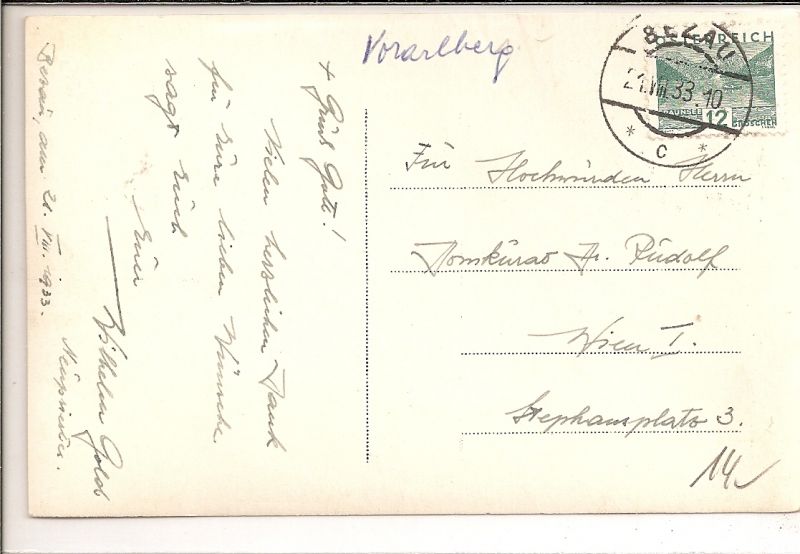 Vorarlberg
BEZAU
21.VIII.33.10
* C *
ÖSTERREICH
12
GROSCHEN
+ Grüß Gott!
Vielen herzlichen Dank
für Eure lieben Wünsche
sagt Euch
Euer
Wilhelm Gold
Neupriester.
Bezau, am 21. VIII. 1933.
Für Hochwürden Herrn
Domkurat Dr. Rudolf
Wien I.
Stephansplatz 3.
14